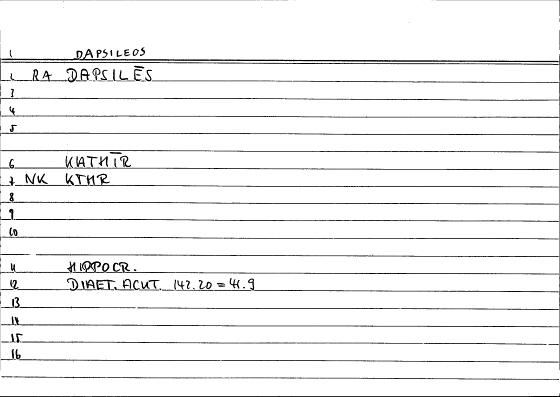 1 DAPSILEOS
2 RA DAPSILĒS
3
4
5
6 KATHĪR
7 NK KTHR
8
9
10
11 HIPPOCR.
12 DIAET. ACUT. 142.20 = 41.9
13
14
15
16